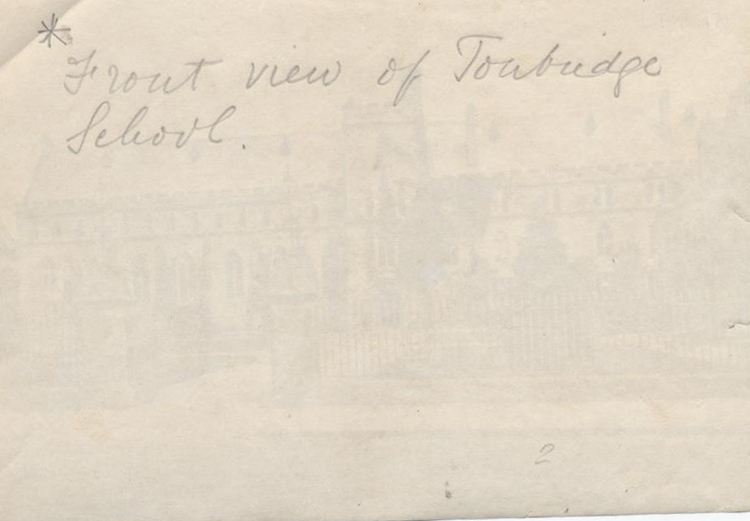 *
Front view of Tonbridge
School.
2